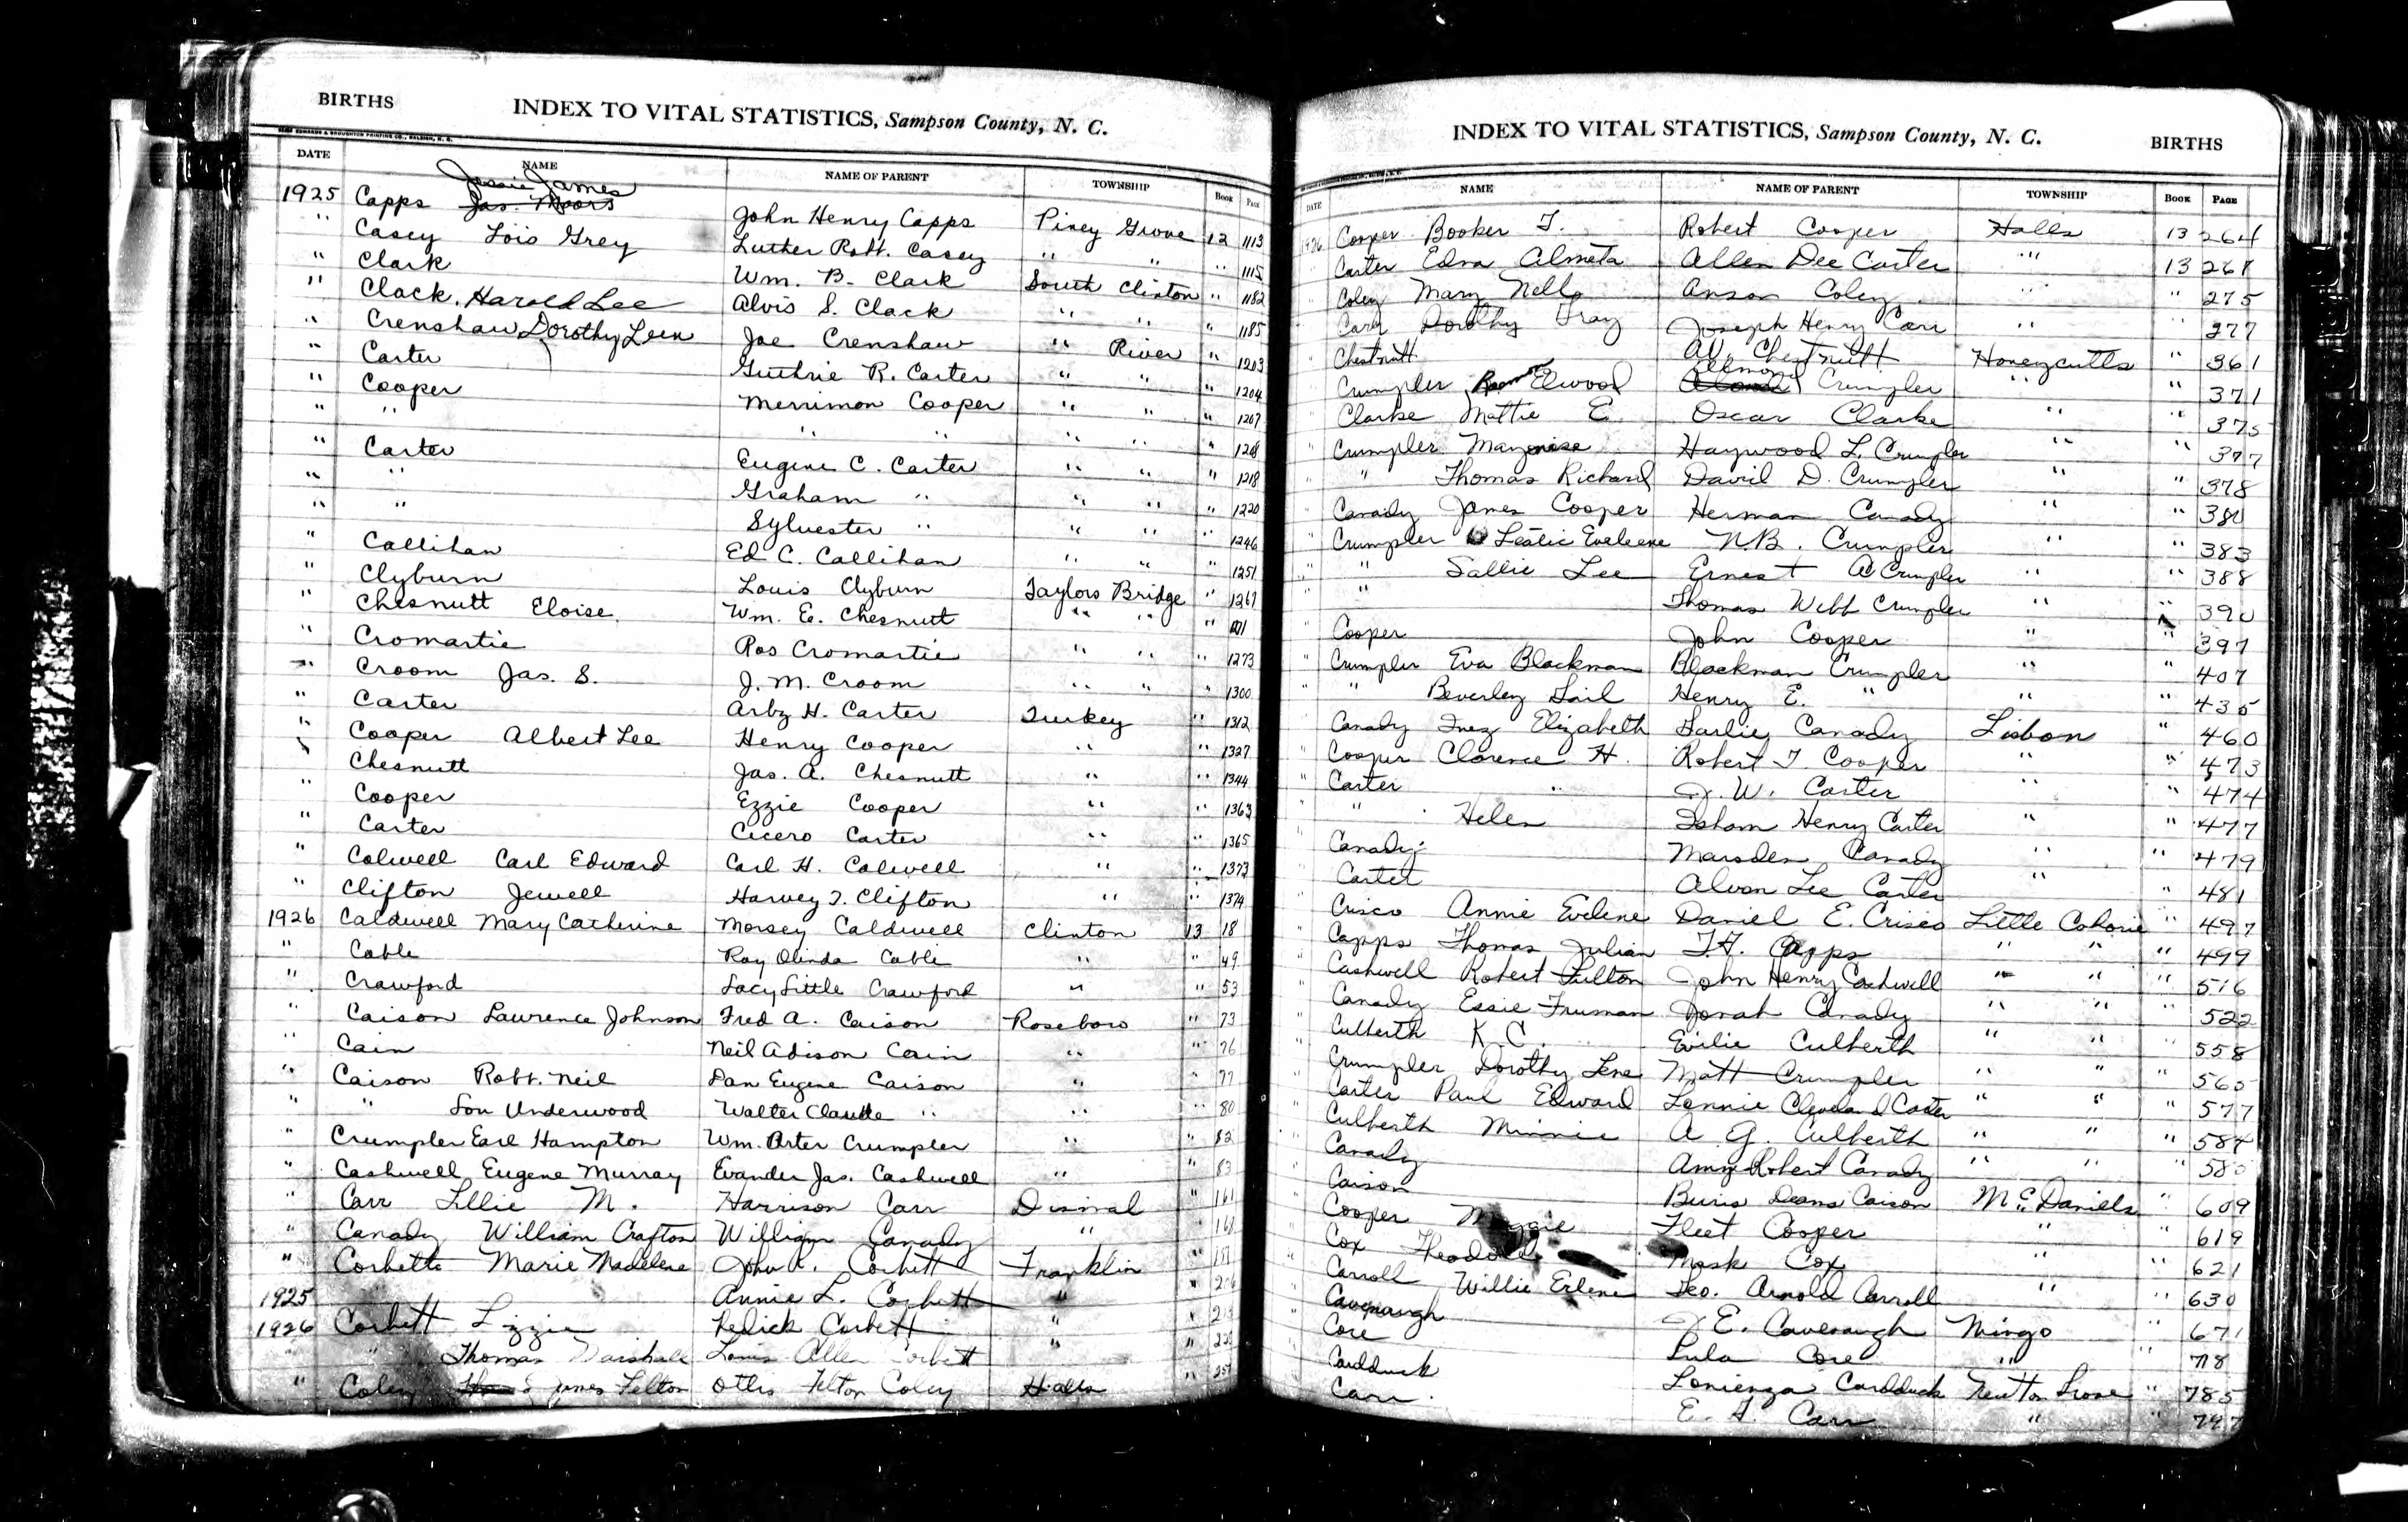 BIRTHS
INDEX TO VITAL STATISTICS, Sampson County, N. C.
EDWARDS & BROUGHTON PRINTING CO., RALEIGH, N. C.
DATE NAME NAME OF PARENT TOWNSHIP Book Page
Jessie James
1925 Capps Jas. Moors John Henry Capps Piney Grove 12 1113
" Casey Lois Grey Luther Robt. Casey " " " 1115
" Clark Wm. B. Clark South Clinton " 1182
" Clack, Harold Lee Alvis S. Clack " " " 1185
" Crenshaw Dorothy Leen Joe Crenshaw " River " 1203
" Carter Guthrie R. Carter " " " 1204
" Cooper Merrimon Cooper " " " 1207
" " " " " " " 1208
" Carter Eugene C. Carter " " " 1218
" " Graham " " " " 1220
" " Sylvester " " " " 1246
" Callihan Ed C. Callihan " " " 1251
" Clyburn Louis Clyburn Taylors Bridge " 1261
" Chesnutt Eloise Wm. E. Chesnutt " " "
" Cromartie Ros Cromartie " " " 1273
" Croom Jas. S. J. M. Croom " " " 1300
" Carter Arby H. Carter Turkey " 1312
" Cooper Albert Lee Henry Cooper " " 1327
" Chesnutt Jas. A. Chesnutt " " 1344
" Cooper Ezzie Cooper " " 1363
" Carter Cicero Carter " " 1365
" Colwell Carl Edward Carl H. Colwell " " 1373
" Clifton Jewell Harvey T. Clifton " " 1374
1926 Caldwell Mary Catherine Morsey Caldwell Clinton 13 18
" Cable Ray Olinda Cable " " 49
" Crawford Lacy Little Crawford " " 53
" Caison Lawrence Johnson Fred A. Caison Roseboro " 73
" Cain Neil Adison Cain " " 76
" Caison Robt. Neil Dan Eugene Caison " " 77
" " Lou Underwood Walter Claude " " " 80
" Crumpler Earl Hampton Wm. Arter Crumpler " " 82
" Cashwell Eugene Murray Evander Jas. Cashwell " " 83
" Carr Lillie M. Harrison Carr Dismal " 161
" Canady William Crafton William Canady " " 161
" Corbette Marie Madelene John Corbett Franklin "
1925 " Annie L. Corbett " "
1926 Corbett Lizzie Redick Corbett " "
" " Thomas Marshall Louis Allen Corbett " "
" Coley James Felton Otlis Felton Coley Halls " 257
INDEX TO VITAL STATISTICS, Sampson County, N. C.
BIRTHS
DATE NAME NAME OF PARENT TOWNSHIP Book Page
1926 Cooper Booker T. Robert Cooper Halls 13 264
" Carter Edna Almeta Allen Dee Carter " 13 267
" Coley Mary Nell Anson Coley " " 275
" Carr Dorothy Gray Joseph Henry Carr " " 277
" Chestnutt Al. Chestnutt Honeycutts " 361
" Crumpler Elwood Allmond Crumpler " " 371
" Clarke Mattie E. Oscar Clarke " " 375
" Crumpler Haywood L. Crumpler " " 377
" " Thomas Richard David D. Crumpler " " 378
" Canady James Cooper Herman Canady " " 380
" Crumpler Leslie Eveleene N.B. Crumpler " " 383
" " Sallie Lee Ernest A Crumpler " " 388
" " Thomas Webb Crumpler " " 390
" Cooper John Cooper " " 397
" Crumpler Eva Blackman Blackman Crumpler " " 407
" " Beverley Gail Henry E. " " " 435
" Canady Inez Elizabeth Harlie Canady Lisbon " 460
" Cooper Clarence H. Robert T. Cooper " " 473
" Carter J. W. Carter " " 474
" " Helen Isham Henry Carter " " 477
" Canady Marsden Canady " " 479
" Carter Alvon Lee Carter " " 481
" Crisco Annie Evelene Daniel E. Crisco Little Coharie " 497
" Capps Thomas Julian T.F. Capps " " " 499
" Cashwell Robert Fulton John Henry Cashwell " " " 516
" Canady Essie Truman Jonah Canady " " " 522
" Culberth K.C. Evilie Culberth " " " 558
" Crumpler Dorothy Lene Matt Crumpler " " " 565
" Carter Paul Edward Lennie Cleveland Carter " " " 577
" Culberth Minnie A G. Culberth " " " 584
" Canady Amy Robert Canady " " " 58
" Caison Buris Deams Caison McDaniels " 609
" Cooper Maggie Fleet Cooper " " 619
" Cox Theodore Mask Cox " " 621
" Carroll Willie Erlene Geo. Arnold Carroll " " 630
" Cavenaugh J E. Cavenaugh Mingo " 671
" Core Lula Core " " 718
" Cardduck Lonienza Cardduck Newton Grove " 785
" Carr E. F. Carr " " 797